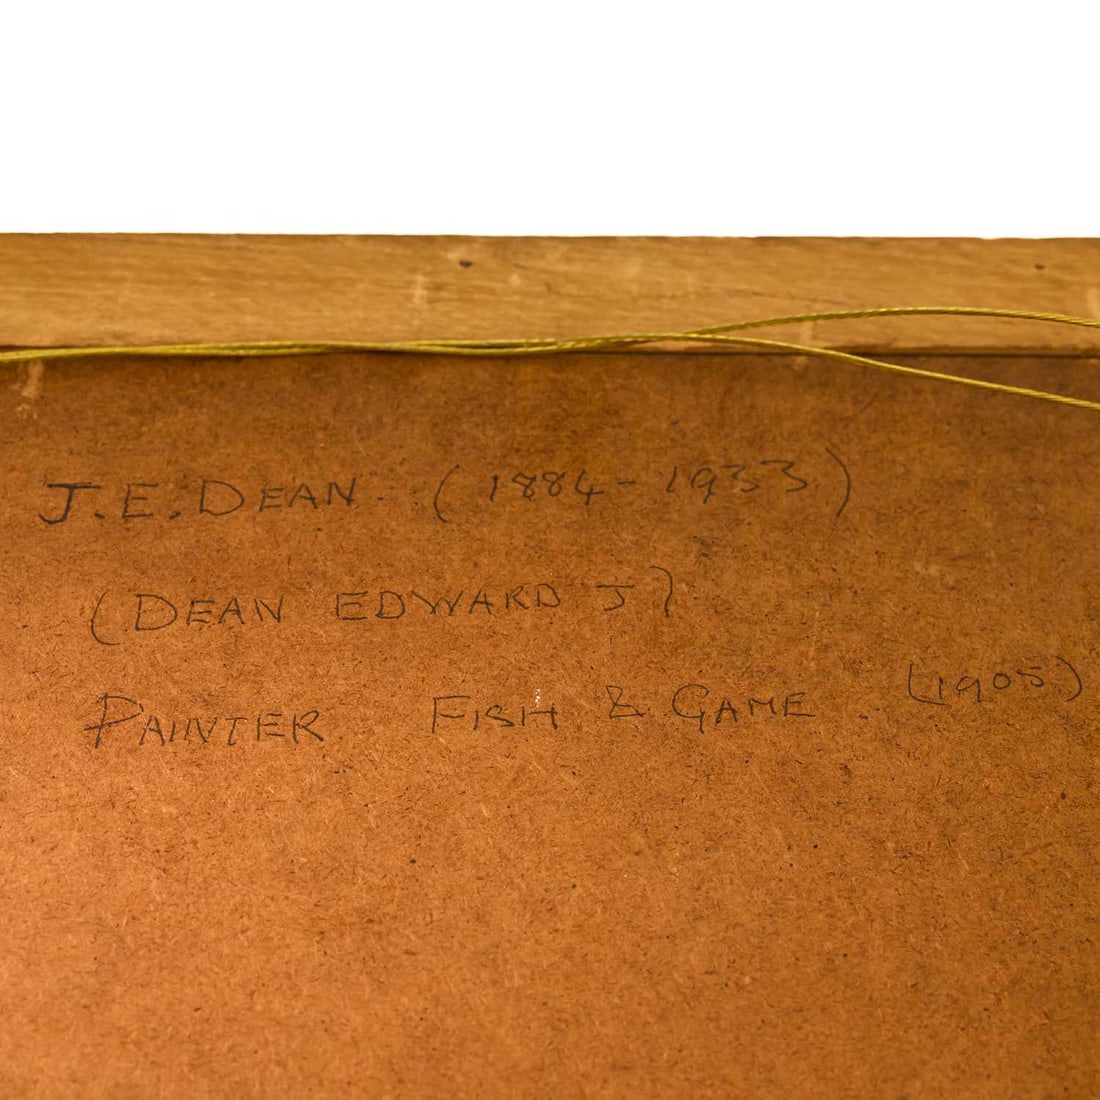 J.E. DEAN (1884-1933)
(DEAN EDWARD J)
PAINTER FISH & GAME. (1905)